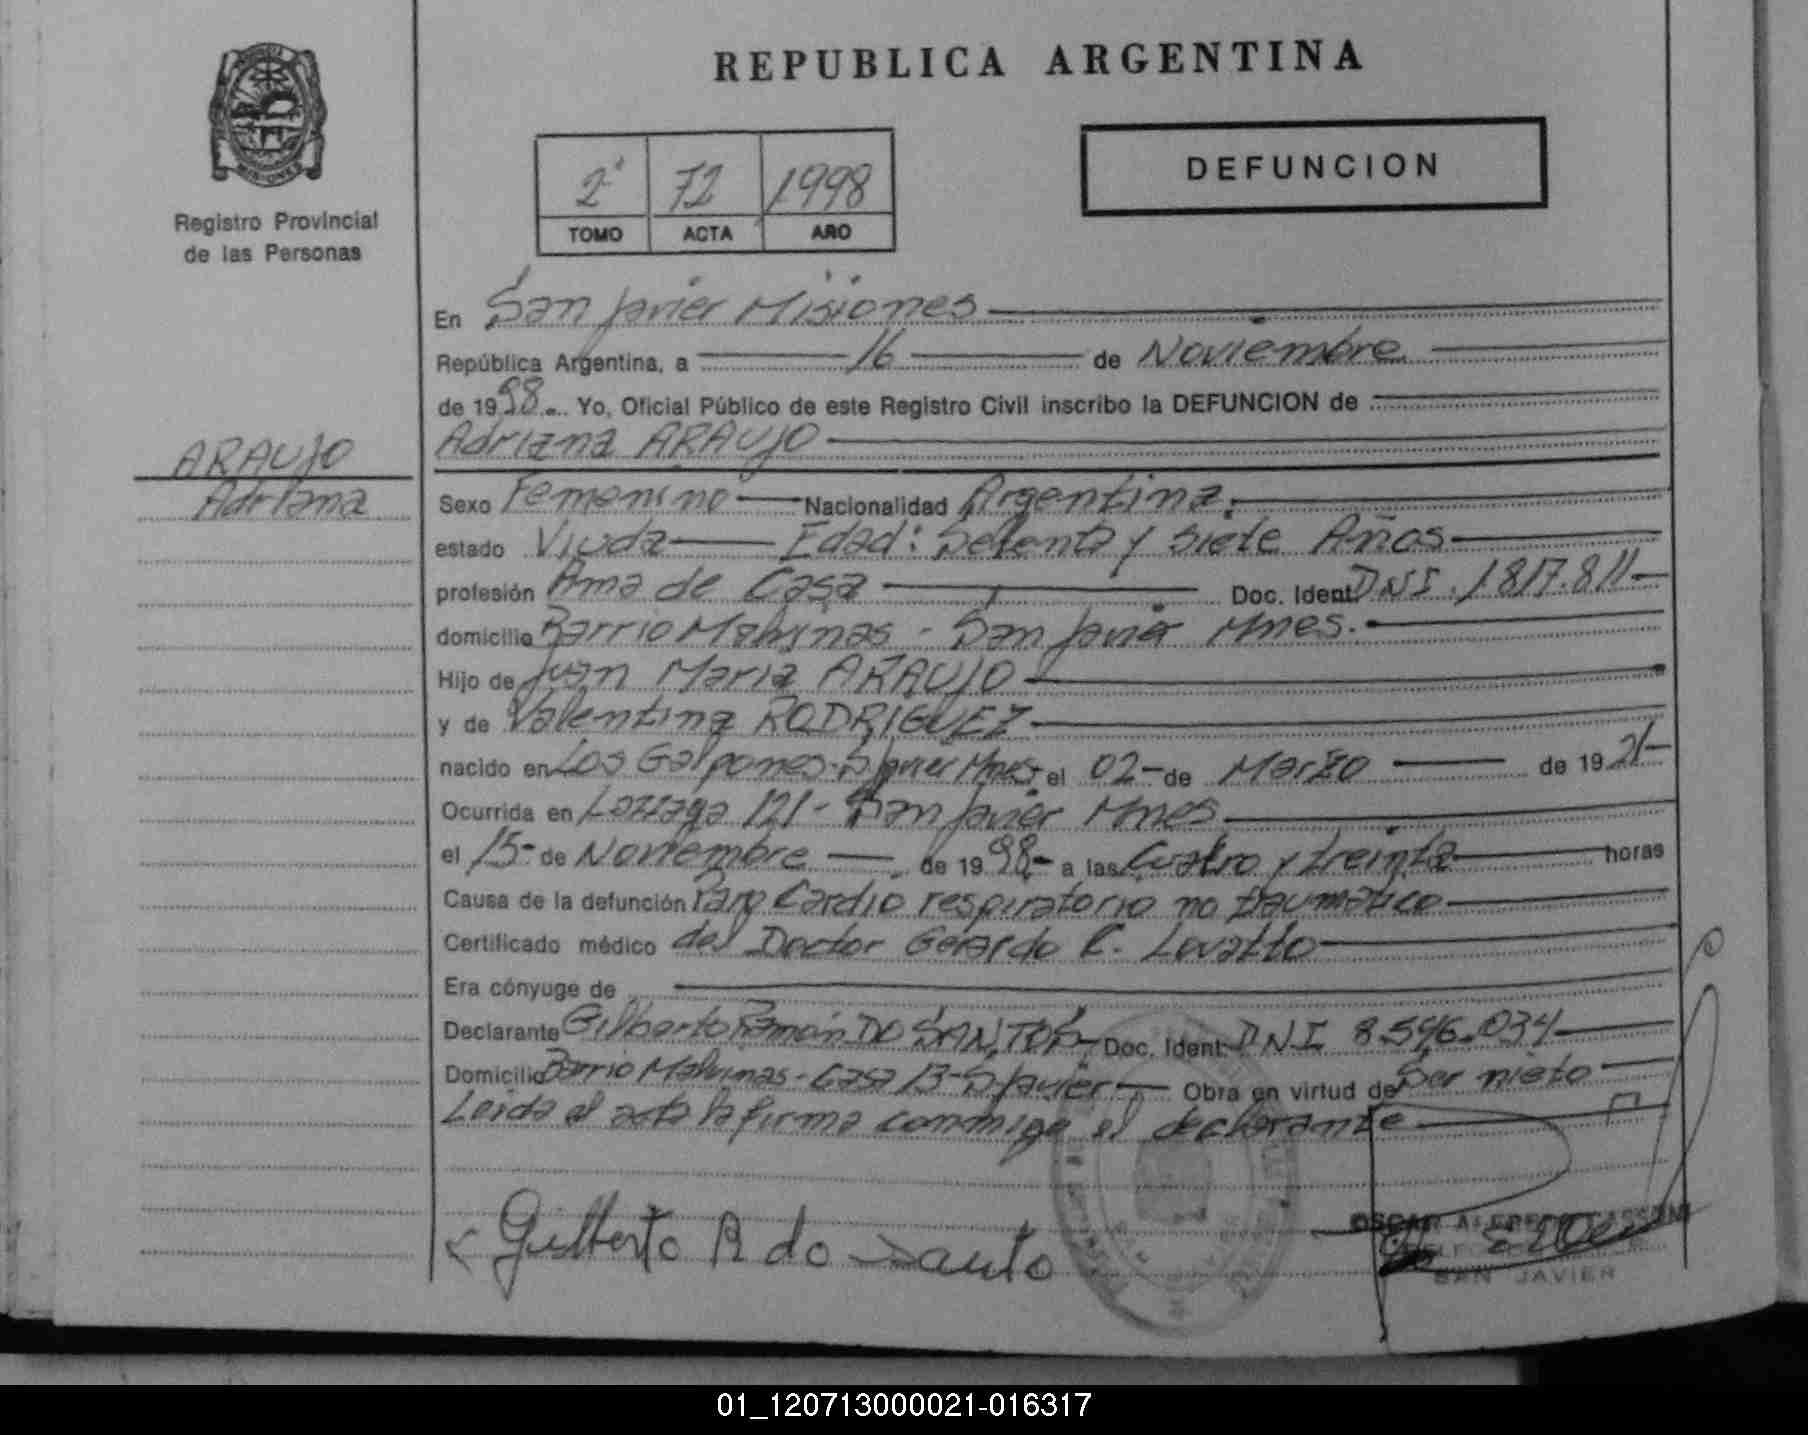 REPUBLICA ARGENTINA
MISIONES
Registro Provincial
de las Personas
2° 72 1998
TOMO ACTA AÑO
DEFUNCION
En San Javier Misiones
República Argentina, a 16 de Noviembre
de 1998. Yo, Oficial Público de este Registro Civil inscribo la DEFUNCION de
Adriana ARAUJO
ARAUJO
Adriana
Sexo Femenino Nacionalidad Argentina
estado Viuda Edad: Setenta y Siete Años
profesión Ama de Casa Doc. Ident. DNI. 1817.811
domicilio Barrio Malvinas - San Javier Mnes.
Hijo de Juan Maria ARAUJO
y de Valentina RODRIGUEZ
nacido en Los Galpones-S Javier Mnes. el 02 de Marzo de 1921
Ocurrida en 121 - San Javier Mnes
el 15 de Noviembre de 1998 a las Cuatro y treinta horas
Causa de la defunción Paro Cardio respiratorio no traumatico
Certificado médico del Doctor Gerardo Lovatto
Era cónyuge de
Declarante Gilberto Ramón DO SANTOS Doc. Ident. DNI 8.596.034
Domicilio Barrio Malvinas - Casa 13 - S Javier Obra en virtud de Ser nieto
Leida el acta la firma conmigo el declarante
Gilberto R do Santo
OSCAR
SAN JAVIER
01_120713000021-016317